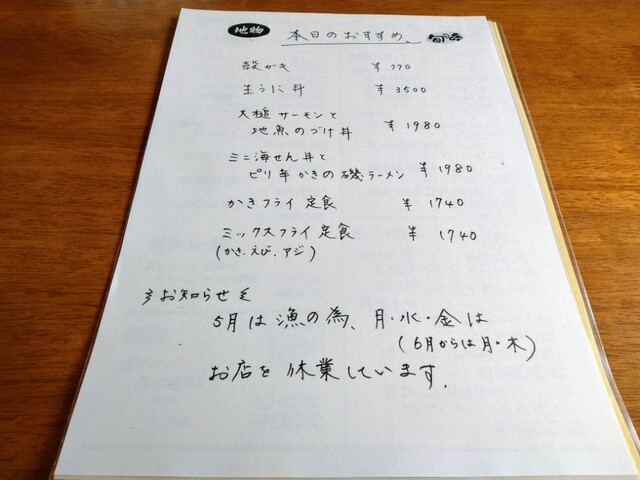 地物 本日のおすすめ
殻ガキ ¥770
生うに丼 ¥3500
大槌サーモンと
地魚のづけ丼 ¥1980
ミニ海せん丼と
ピリ辛かきの磯ラーメン ¥1980
かきフライ定食 ¥1740
ミックスフライ定食 ¥1740
(かき、えび、アジ)
お知らせ
5月は漁の為、月・水・金は
(6月からは月・木)
お店を休業しています.